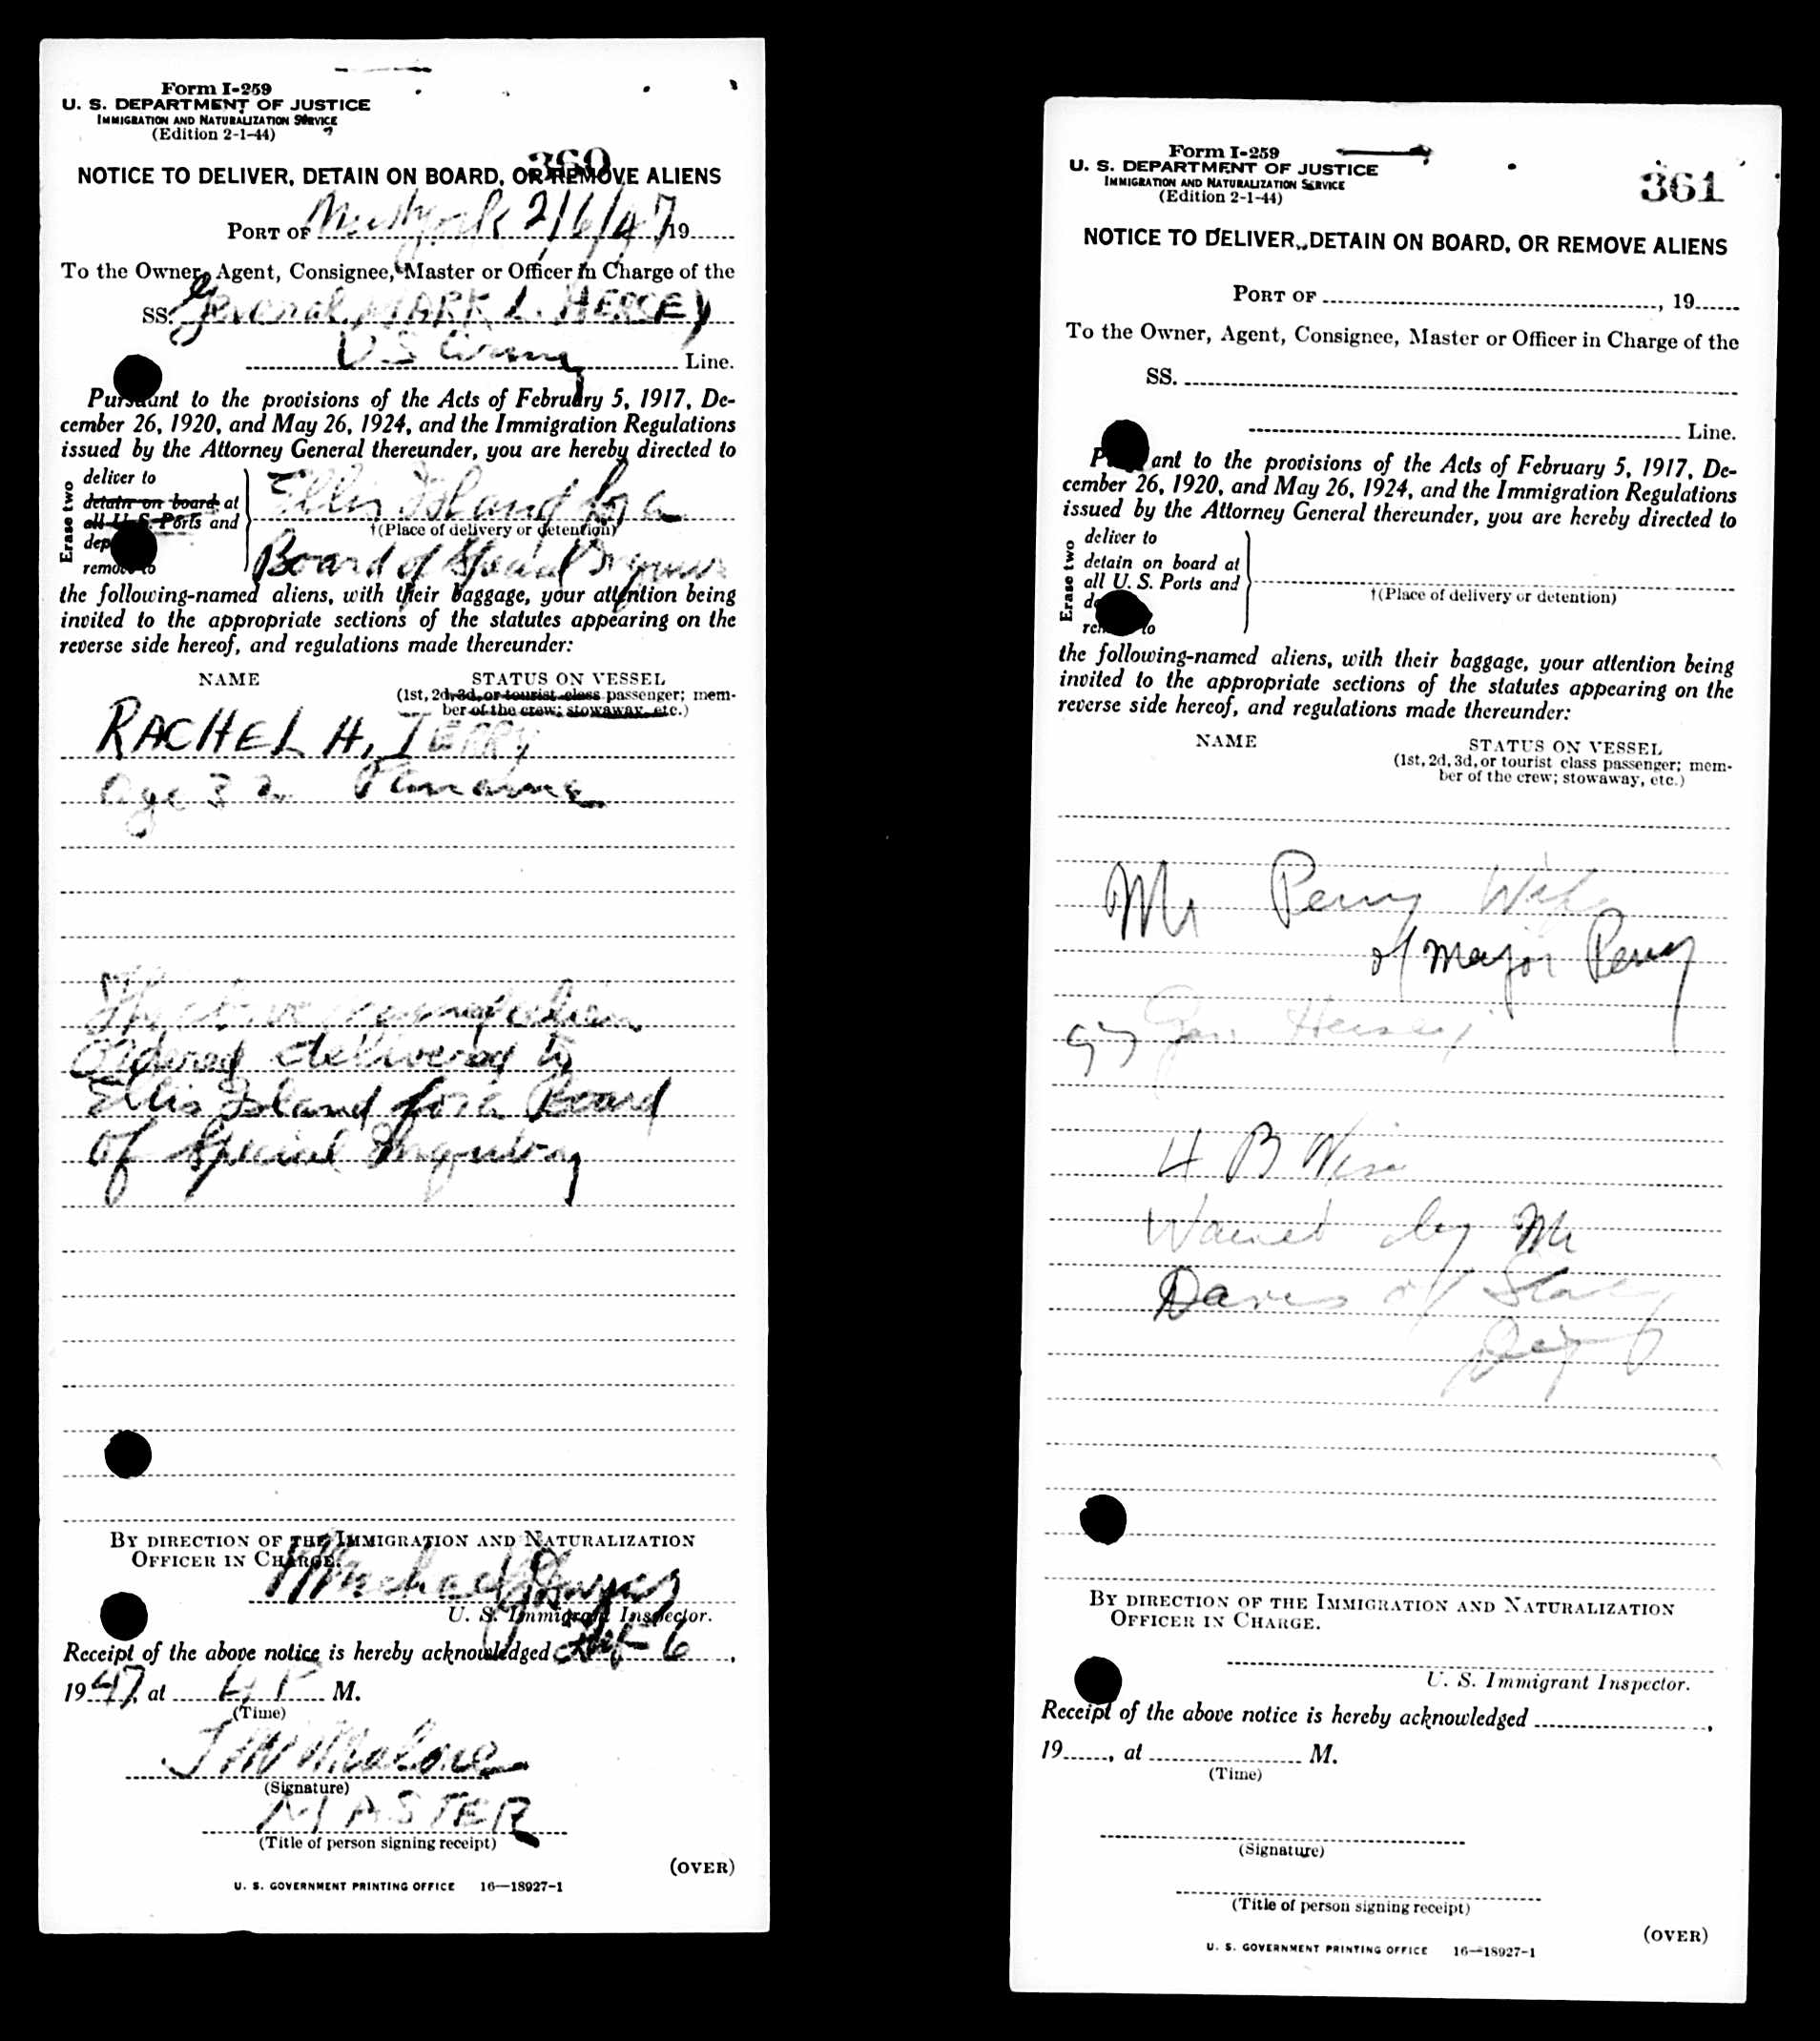 Form I-259
U. S. DEPARTMENT OF JUSTICE
IMMIGRATION AND NATURALIZATION SERVICE
(Edition 2-1-44)
360
NOTICE TO DELIVER, DETAIN ON BOARD, OR REMOVE ALIENS
PORT OF New York 2/6/47 19
To the Owner, Agent, Consignee, Master or Officer in Charge of the
SS. General MARK L. HERSEY
U S Army Line.
Pursuant to the provisions of the Acts of February 5, 1917, De-
cember 26, 1920, and May 26, 1924, and the Immigration Regulations
issued by the Attorney General thereunder, you are hereby directed to
Erase two
deliver to
detain on board at
all U. S. Ports and
dep
remove to
Ellis Island for a
†(Place of delivery or detention)
Board of Special Inquiry
the following-named aliens, with their baggage, your attention being
invited to the appropriate sections of the statutes appearing on the
reverse side hereof, and regulations made thereunder:
NAME STATUS ON VESSEL
(1st, 2d, 3d, or tourist class passenger; mem-
ber of the crew; stowaway, etc.)
RACHEL H.
age 32 Panama
The above named alien
ordered delivered to
Ellis Island for a Board
of Special Inquiry
BY DIRECTION OF THE IMMIGRATION AND NATURALIZATION
OFFICER IN CHARGE.
Michael
U. S. Immigrant Inspector.
Receipt of the above notice is hereby acknowledged Feb 6,
1947, at 4 P M.
(Time)
Malone
(Signature)
MASTER
(Title of person signing receipt)
(OVER)
U. S. GOVERNMENT PRINTING OFFICE 16—18927-1
Form I-259
U. S. DEPARTMENT OF JUSTICE
IMMIGRATION AND NATURALIZATION SERVICE
(Edition 2-1-44)
361
NOTICE TO DELIVER, DETAIN ON BOARD, OR REMOVE ALIENS
PORT OF , 19
To the Owner, Agent, Consignee, Master or Officer in Charge of the
SS.
Line.
P ant to the provisions of the Acts of February 5, 1917, De-
cember 26, 1920, and May 26, 1924, and the Immigration Regulations
issued by the Attorney General thereunder, you are hereby directed to
Erase two
deliver to
detain on board at
all U. S. Ports and
de
rem to
†(Place of delivery or detention)
the following-named aliens, with their baggage, your attention being
invited to the appropriate sections of the statutes appearing on the
reverse side hereof, and regulations made thereunder:
NAME STATUS ON VESSEL
(1st, 2d, 3d, or tourist class passenger; mem-
ber of the crew; stowaway, etc.)
Mr Perry Wife
of Major Perry
Gen Hersey
4 B
Waived by Mr
Davis of State
Dept
BY DIRECTION OF THE IMMIGRATION AND NATURALIZATION
OFFICER IN CHARGE.
U. S. Immigrant Inspector.
Receipt of the above notice is hereby acknowledged ,
19 , at M.
(Time)
(Signature)
(Title of person signing receipt)
(OVER)
U. S. GOVERNMENT PRINTING OFFICE 16—18927-1